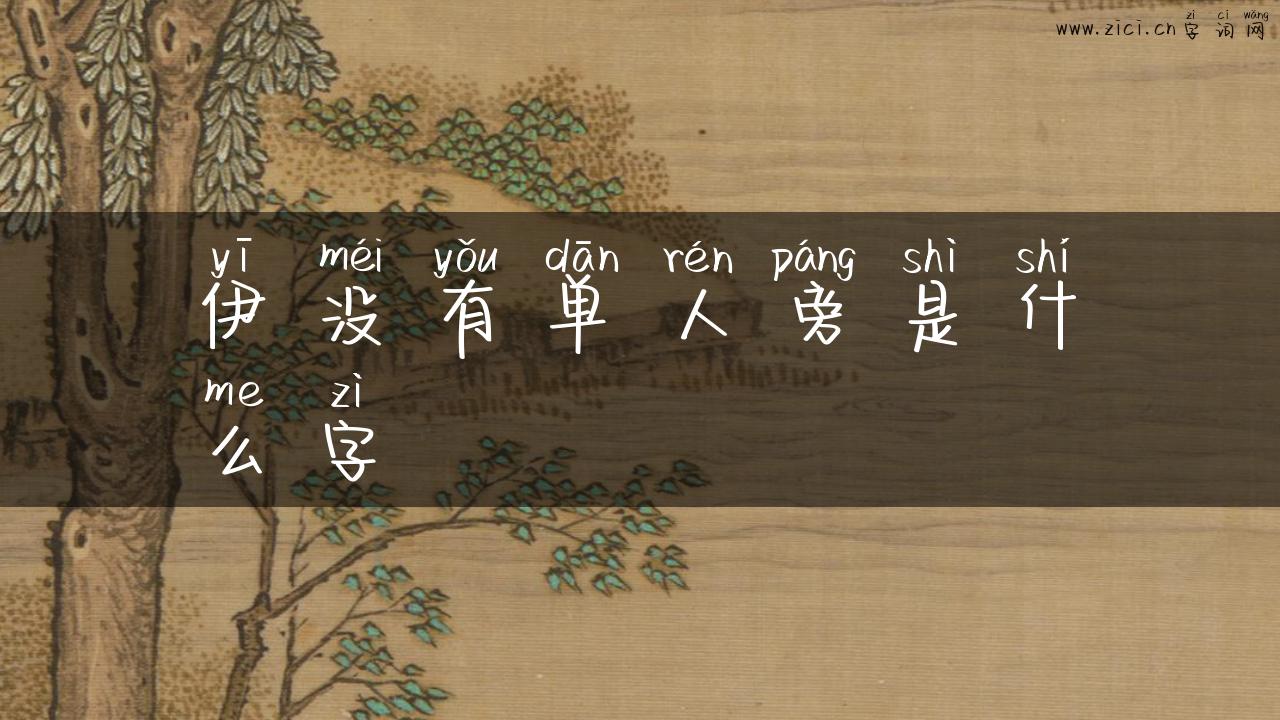 zì cí wǎng
www.zici.cn 字词网
yī méi yǒu dān rén páng shì shí
伊没有单人旁是什
me zì
么字